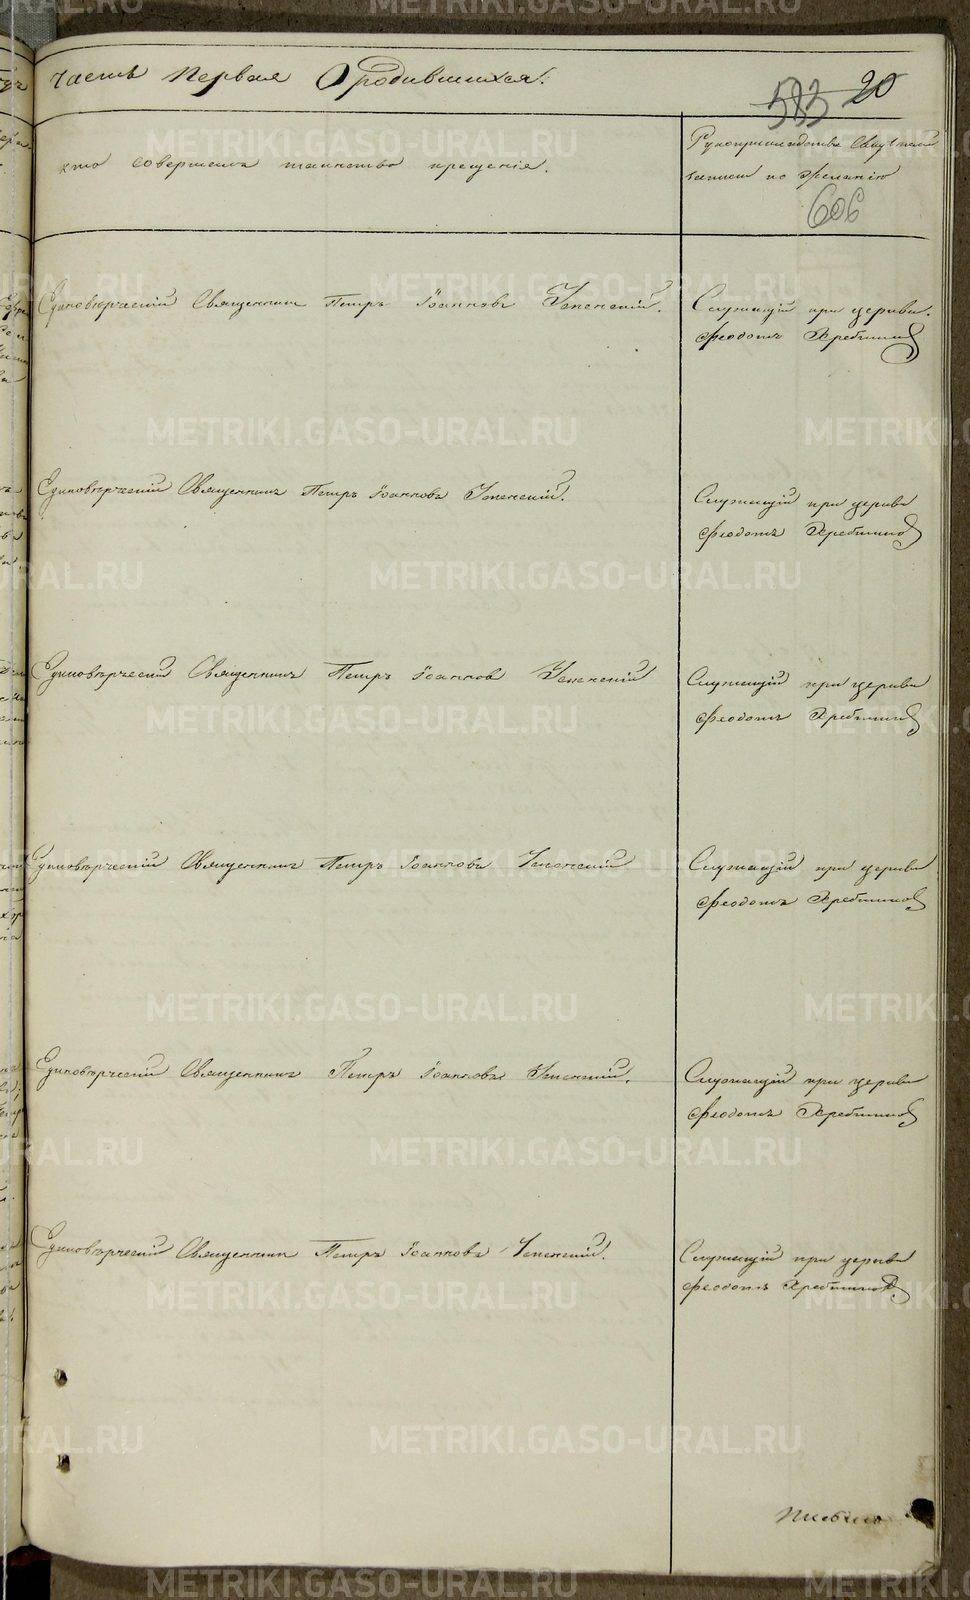 Часть Первая О родившихся.
583 20
кто совершалъ таинство крещенія.
Рукоприкладство Свидѣтелей
записи по желанію
606
Единовѣрческій Священникъ Петръ Іоанновъ Успенскій.
Служащій при церкви.
Феодотъ
Единовѣрческій Священникъ Петръ Іоанновъ Успенскій.
Служащій при церкви
Феодотъ
Единовѣрческій Священникъ Петръ Іоанновъ Успенскій
Служащій при церкви
Феодотъ
Единовѣрческій Священникъ Петръ Іоанновъ Успенскій
Служащій при церкви
Феодотъ
Единовѣрческій Священникъ Петръ Іоанновъ Успенскій.
Служащій при церкви
Феодотъ
Единовѣрческій Священникъ Петръ Іоанновъ Успенскій.
Служащій при церкви
Феодотъ
METRIKI.GASO-URAL.RU